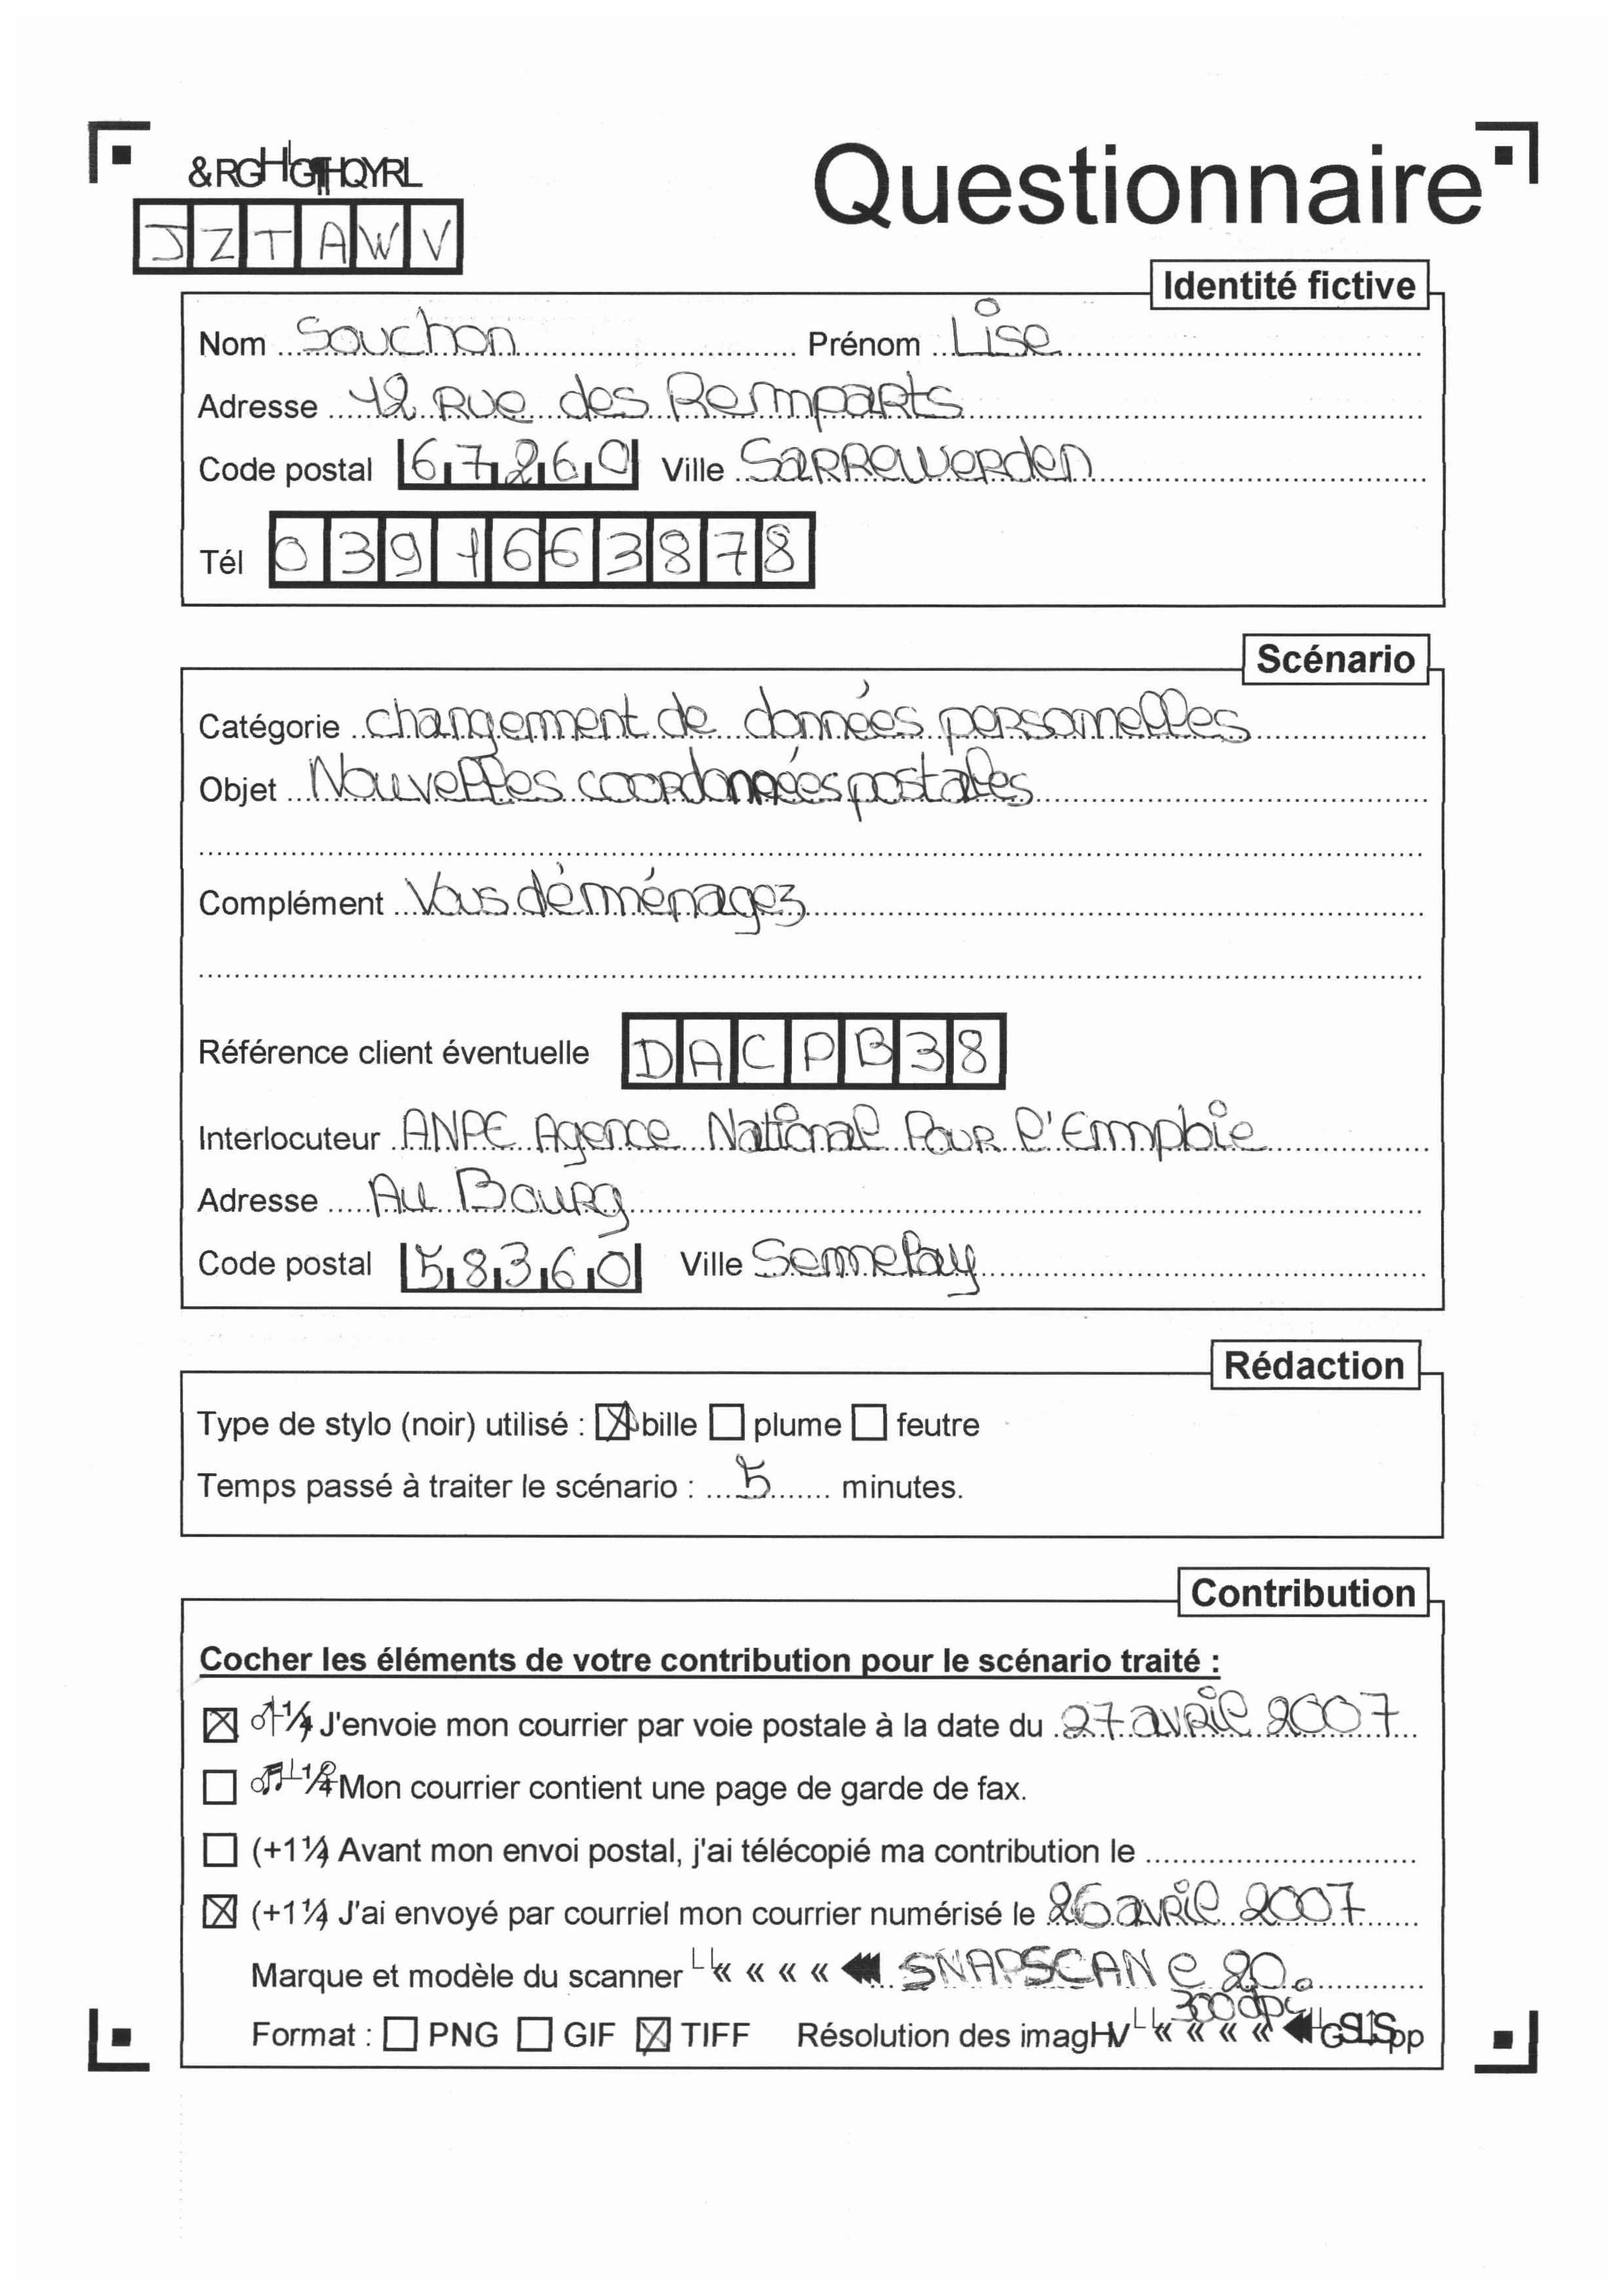 &RGHGHQYRL
Questionnaire
JZTAWV
Identité fictive
Nom Souchon Prénom Lise
Adresse 12 Rue des Remparts
Code postal 67260 Ville Sarrewerden
Tél 0391663878
Scénario
Catégorie changement de données personnelles
Objet Nouvelles coordonnées postales
Complément Vous déménagez
Référence client éventuelle DACPB38
Interlocuteur ANPE Agence National Pour l'Emploie
Adresse Au Bourg
Code postal 58360 Ville Semelay
Rédaction
Type de stylo (noir) utilisé : ☒ bille ☐ plume ☐ feutre
Temps passé à traiter le scénario : 5 minutes.
Contribution
Cocher les éléments de votre contribution pour le scénario traité :
☒ J'envoie mon courrier par voie postale à la date du 27 avril 2007
☐ Mon courrier contient une page de garde de fax.
☐ (+1 ¼ Avant mon envoi postal, j'ai télécopié ma contribution le
☒ (+1 ¼ J'ai envoyé par courriel mon courrier numérisé le 26 avril 2007
Marque et modèle du scanner « « « « SNAPSCAN e 20.
Format : ☐ PNG ☐ GIF ☒ TIFF Résolution des imagHV « « « « 300 dpi pp